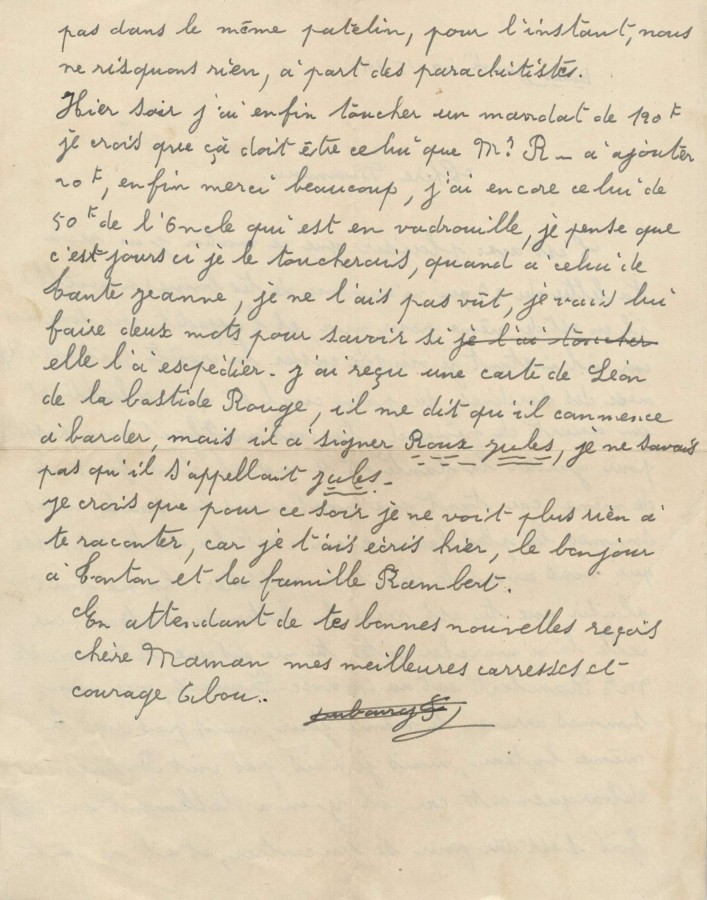 pas dans le même patelin, pour l'instant, nous
ne risquons rien, a part des parachitistes.
Hier soir j'ai enfin toucher un mandat de 120 F
je crois que çà doit être celui que Mr R_ a ajouter
20 F, enfin merci beaucoup, j'ai encore celui de
50 F de l'Oncle qui est en vadrouille, je pense que
c'est jours ci je le toucherais, quand a celui de
Tante Jeanne, je ne l'ais pas vût, je vais lui
faire deux mots pour savoir si je l'ai toucher
elle l'a espédier. J'ai reçu une carte de Léon
de la bastide Rouge, il me dit qu'il commence
a barder, mais il a signer Roux Jules, je ne savais
pas qu'il s'appellait Jules.
Je crois que pour ce soir je ne voit plus rien a
te raconter, car je t'ais écris hier, le bonjour
a Tonton et la famille Rambert.
En attendant de tes bonnes nouvelles reçois
chère Maman mes meilleures carresses et
courage